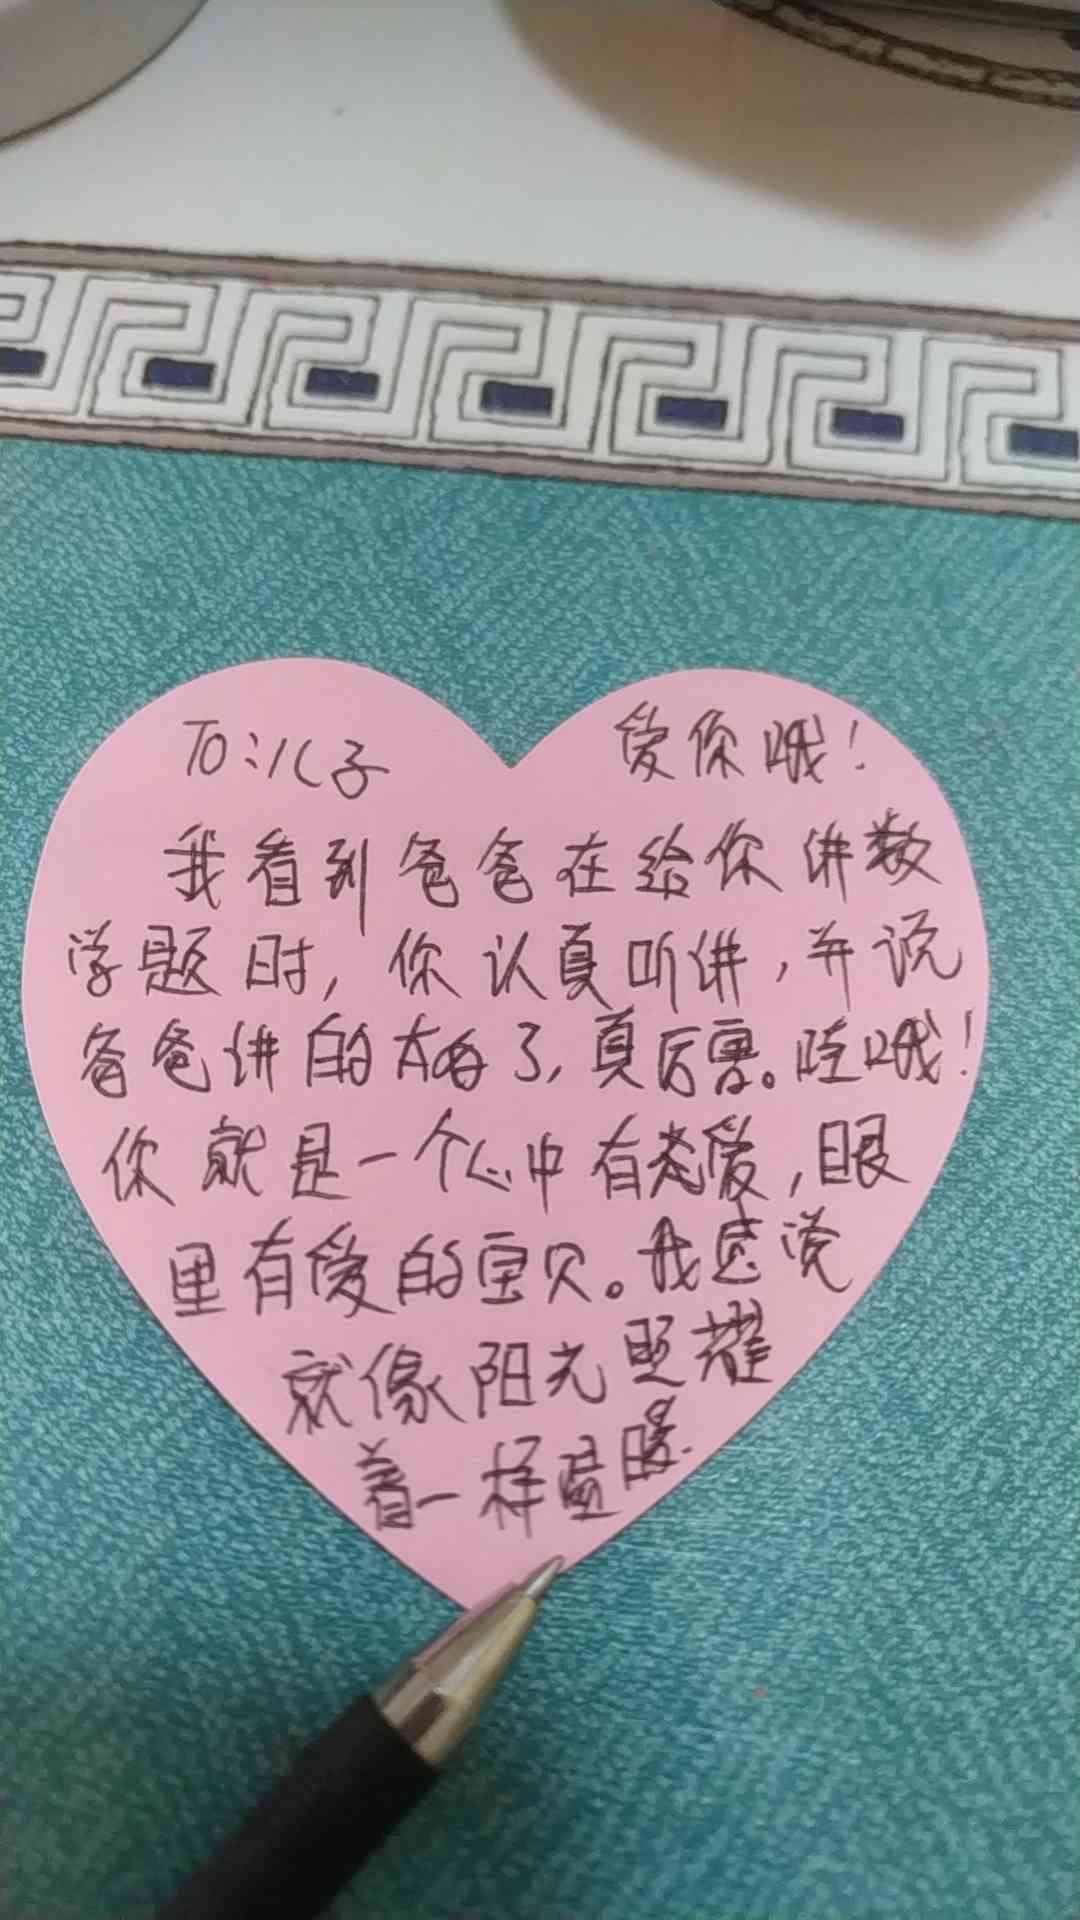 To:儿子
爱你哦!
我看到爸爸在给你讲数
学题时,你认真听讲,并说
爸爸讲的太好了,真厉害。哇哦!
你就是一个心中有爱,眼
里有爱的宝贝。我感觉
就像阳光照耀
着一样温暖.